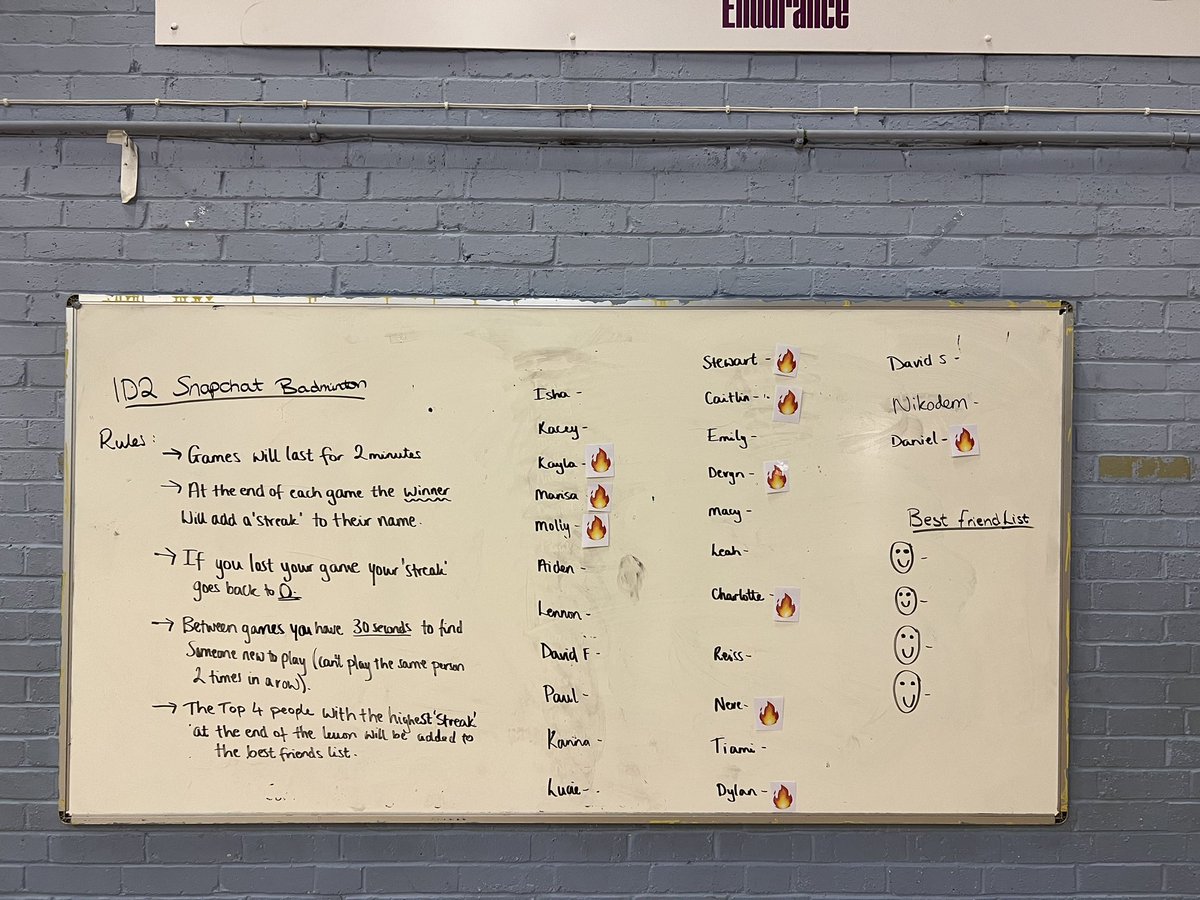 Endurance
1D2 Snapchat Badminton
Rules:
→ Games will last for 2 minutes
→ At the end of each game the winner
will add a 'streak' to their name.
→ If you lost your game your 'streak'
goes back to 0.
→ Between games you have 30 seconds to find
Someone new to play (can't play the same person
2 times in a row).
→ The Top 4 people with the highest 'streak'
at the end of the lesson will be added to
the best friends list.
Isha -
Kacey -
Kayla -
Marisa
Molly -
Aiden -
Lennon -
David F -
Paul -
Karina -
Lucie -
Stewart -
Caitlin -
Emily -
Devyn -
Macy -
Leah -
Charlotte -
Reiss -
Neve -
Tiami -
Dylan -
David S -
Nikodem -
Daniel -
Best friend List